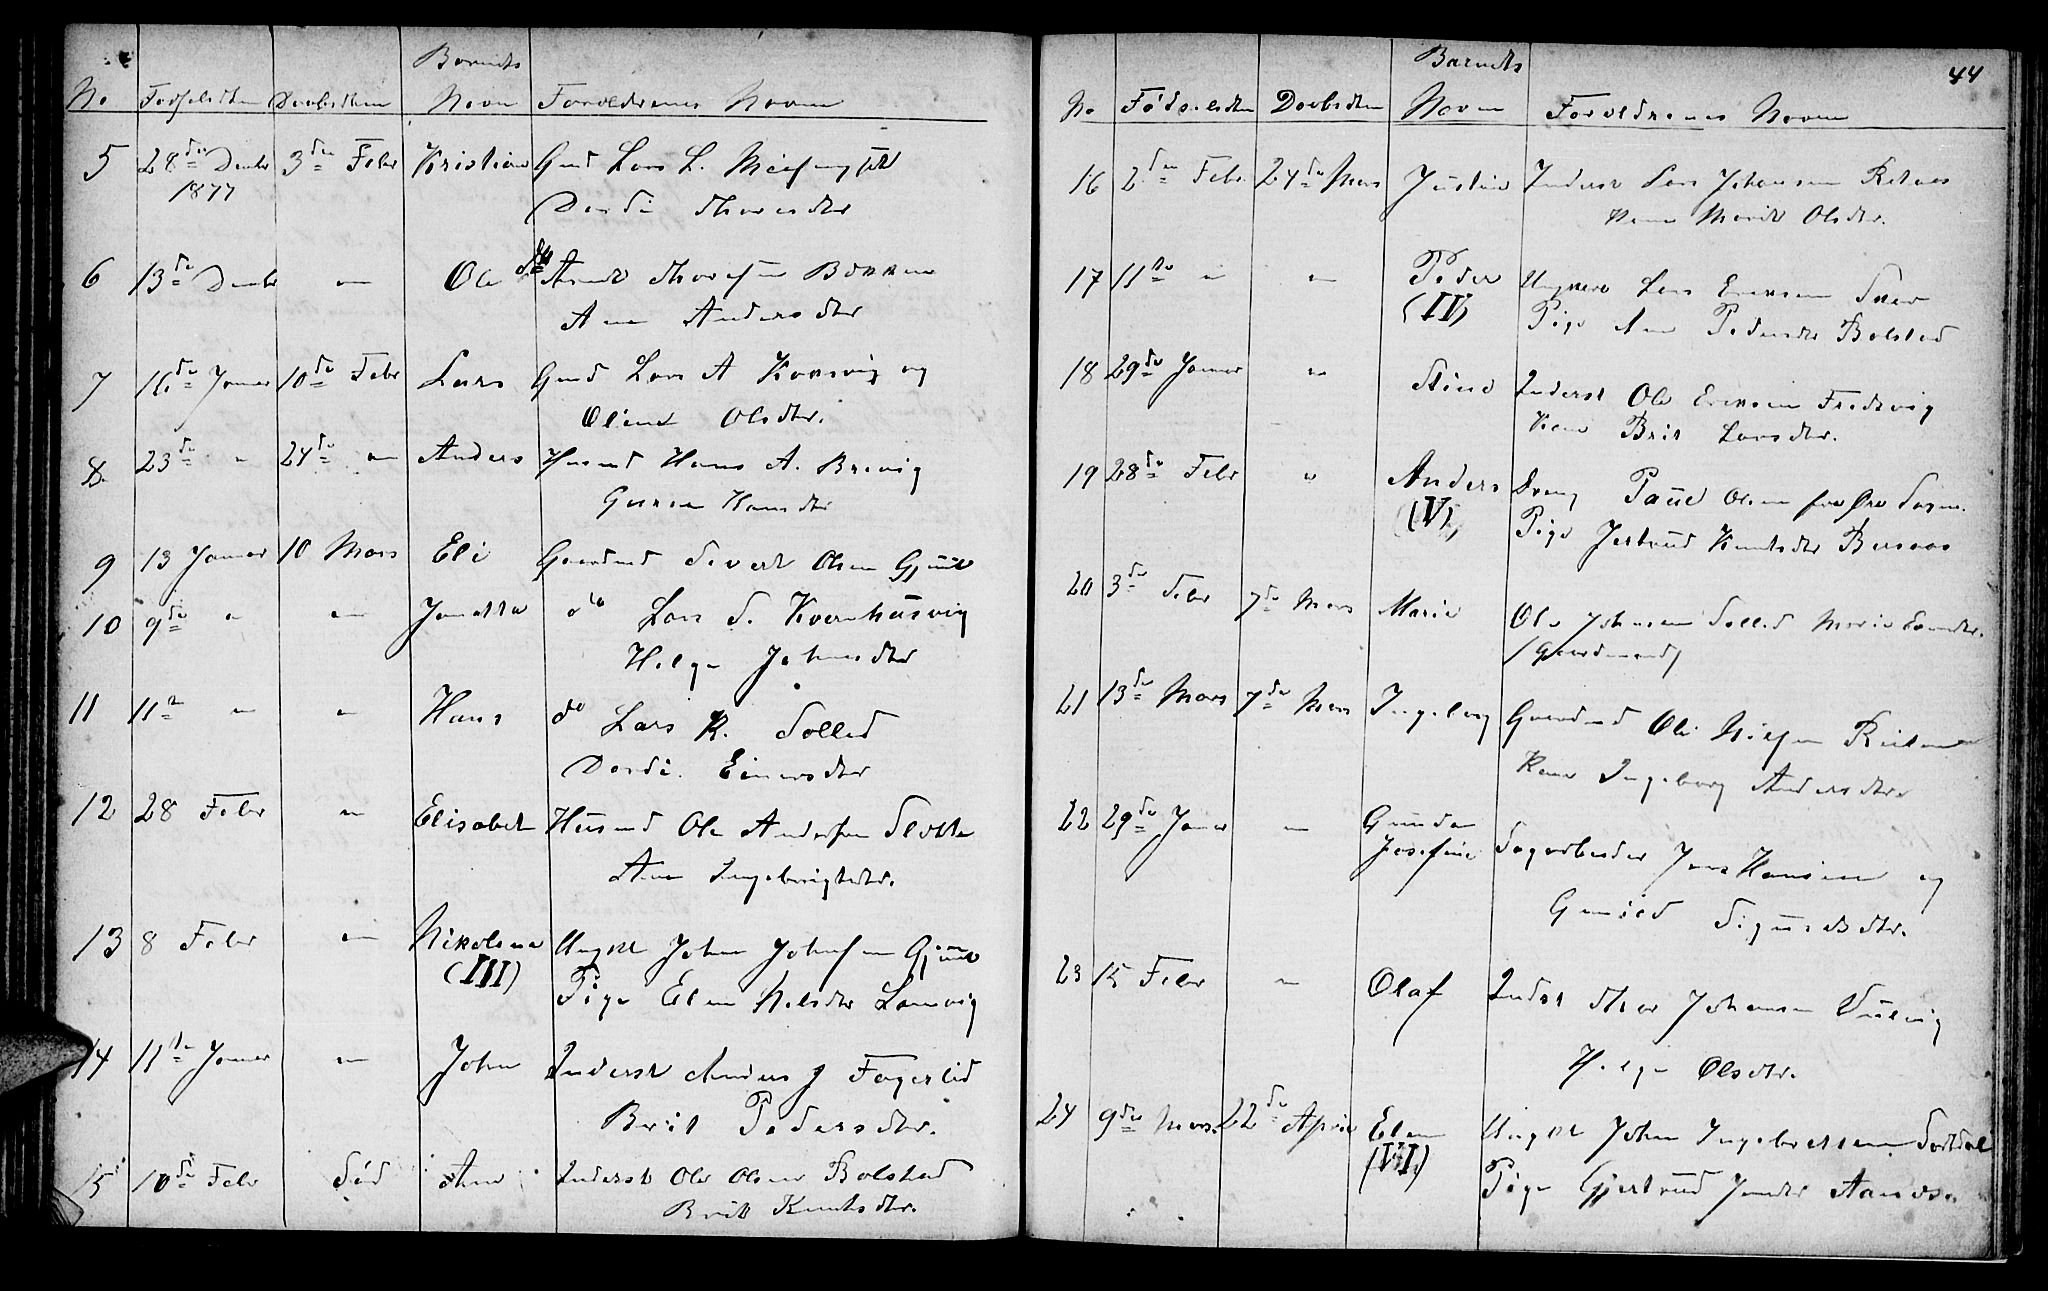 Barnets
No Fødselsdten Daabsdten Navn Foreldrenes Navne
5 28de Decbr 3de Febr Kristian Grmd Lars L.
1877 Dordi Thoresdtr
6 13de Decbr " Ole do Arndt Thoresen Bokken
Ane Andersdtr
7 16de Januar 10de Febr Lars Grmd Lars A Korsvig og
Oline Olsdtr.
8. 23de " 24de " Anders Husmd Hans A. Brevig
Guren Hansdtr
9 13 Januar 10 Mars Eli Gaardmd Sivert Olsen Gjüül
10 9de " " Jonetta do Lars S. Kvernhusvig
Helge Johnsdtr
11 11te " " Hans do Lars K. Solled
Dordi. Einersdtr
12 28 Febr " Elisabet Husmd Ole Andersen Slotta
Ane Ingebrigtsdtr.
13 8 Febr " Nikoline Ungkl John Johnsen Gjüül
(III) Pige Elen Nilsdtr Lamvig
14 11te Januar " John Inderst Anders J Fagerlid
Brit Pedersdtr.
15 10de Febr Død Ane Inderst Ole Olsen Bolstad
Brit Knutsdtr.
44
Barnets
No Fødselsdten Daabsdten Navn Foreldrenes Navne
16 2den Febr 24de Mars Justine Inderst Lars Johansen Retaas
Kone Marit Olsdtr.
17 11te " " Peder Ungkarl Lars Eriksen
(IV) Pige Ane Pedersdtr Bolstad
18 29de Januar " Stine Inderst Ole Eriksen Fredsvig
Kone Brit Larsdtr.
19 28de Febr " Anders Dreng Paul Olsen fra Øre Sogn.
(V) Pige Jertrud Knutsdtr Bersaas
20 3de Febr 7de Mars Marie Ole Johnsen Solled Marie
/Gaardmand/
21 13de Mars 7de Mars Ingeborg Gaardmd Ole Nilsen Reiten
Kone Ingeborg Andersdtr.
22 29de Januar " Gunda
Josefine Dagarbeider Jens Hansen og
Gunild Sigurdsdtr.
23 15 Febr " Olaf Inderst Thor Johansen Vülvig
Helge Olsdtr.
24 9de Mars 22de April Elen Ungkl John Ingebretsen
(VI) Pige Gjertrud Jonsdtr